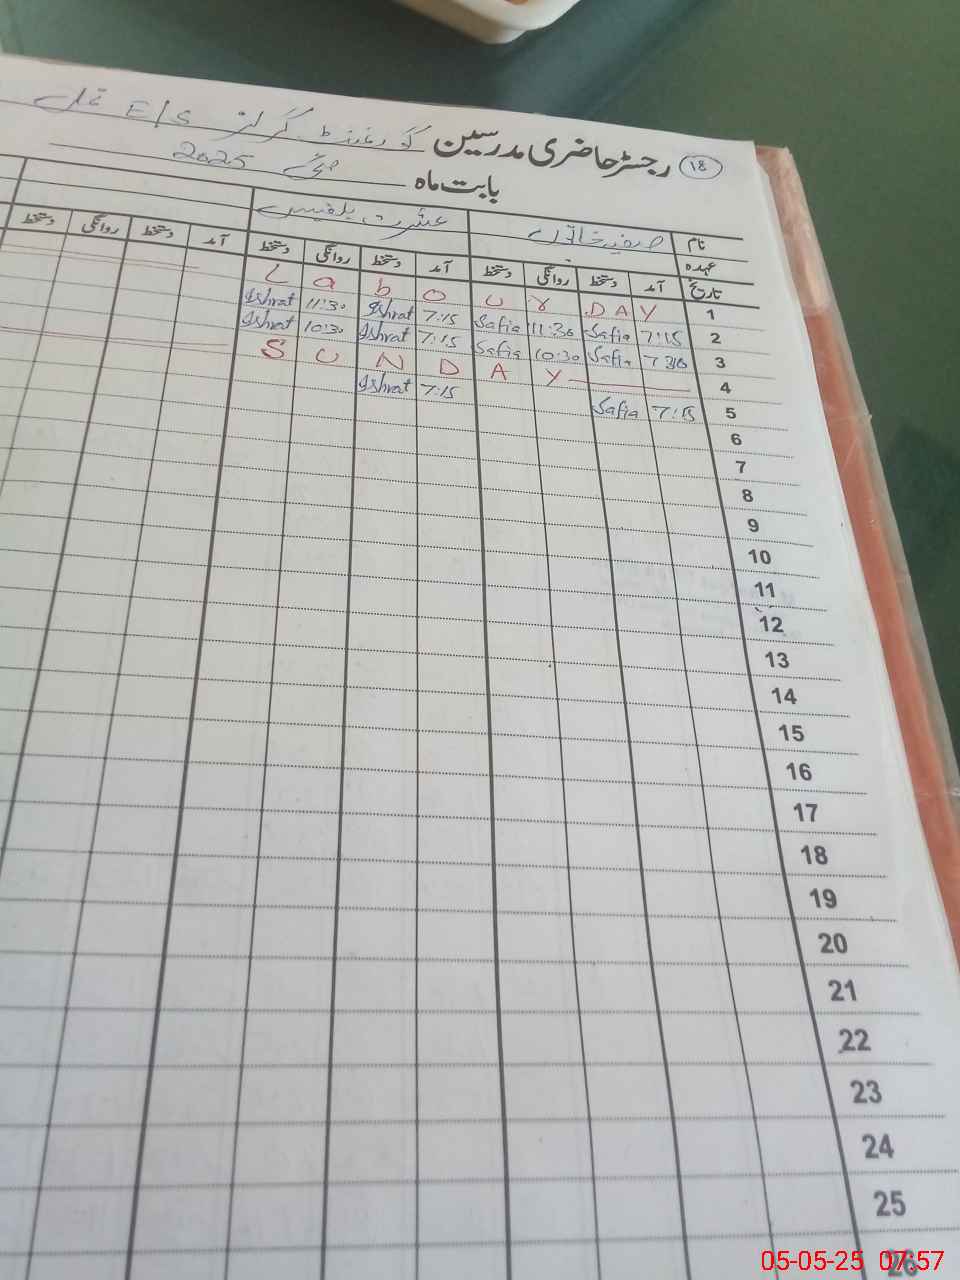 18 رجسٹر حاضری مدرسین گورنمنٹ گرلز E/S
بابت ماہ مئی 2025
نام صفیہ خاتون عشرت بلقیس
عہدہ
تاریخ آمد دستخط روانگی دستخط آمد دستخط روانگی دستخط آمد دستخط روانگی دستخط
Labour DAY 1
Ishrat 11:30 Ishrat 7:15 Safia 11:30 Safia 7:15 2
Ishrat 10:30 Ishrat 7:15 Safia 10:30 Safia 7 30 3
SUNDAY 4
Ishrat 7:15 Safia 7:15 5
6
7
8
9
10
11
12
13
14
15
16
17
18
19
20
21
22
23
24
25
26
05-05-25 07:57